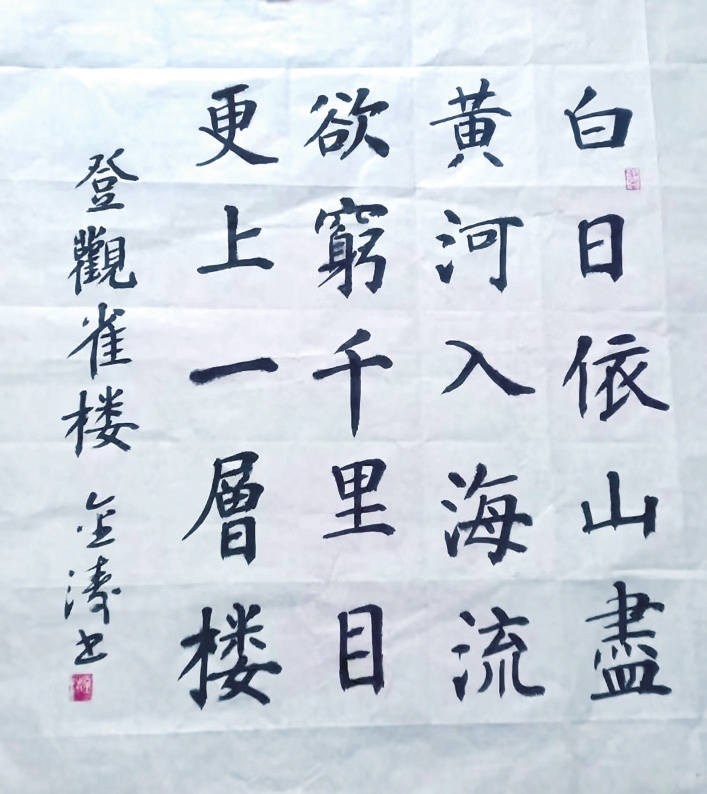 白日依山盡
黃河入海流
欲窮千里目
更上一層楼
登觀雀楼 金濤书